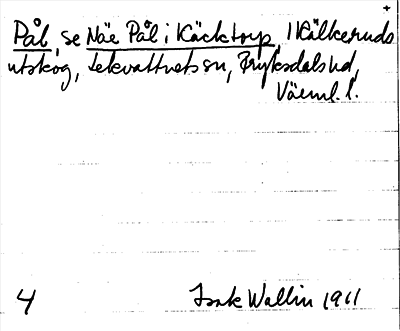 Pål, se Näe Pål i Käcktorp, i Kälkeruds
utskog, Lekvattnets sn, Fryksdals hd,
Värml. l.
4 Isak Wallin 1911